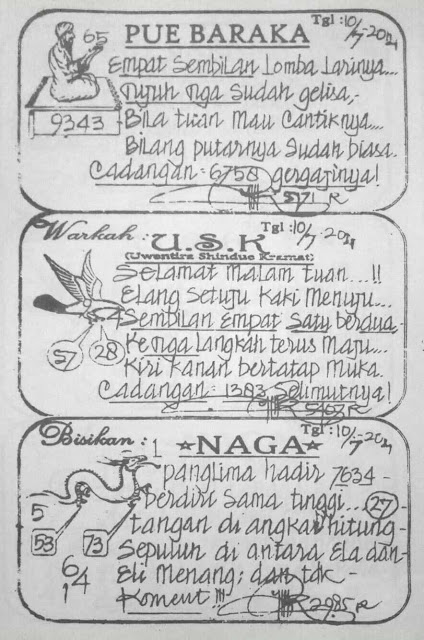 PUE BARAKA
Tgl : 10/7-2021
65
9343
Empat Sembilan Lomba Larinya...
Tujuh Tiga Sudah gelisa,-
Bila tuan Mau Cantiknya....
Bilang putarnya Sudah biasa.
Cadangan = 6758 gergajinya!
Warkah :
U.S.K
(Uwentira Shindue Kramat)
Tgl : 10/7 2021
Selamat Malam tuan...!!
Elang Setuju Kaki Menuju...
Sembilan Empat Satu berdua,-
Ketiga langkah terus Maju...
Kiri Kanan bertatap Muka.
57 28
Cadangan = 1383 Selimutnya!
Bisikan :
NAGA
Tgl : 10/7-2021
1
panglima hadir 7634 -
berdiri Sama tinggi... 27 -
5
tangan di angkat hitung -
53 73
Sepuluh di antara Ela dan -
64
1
Eli Menang; dan tdk -
Koment !!!
2985 R